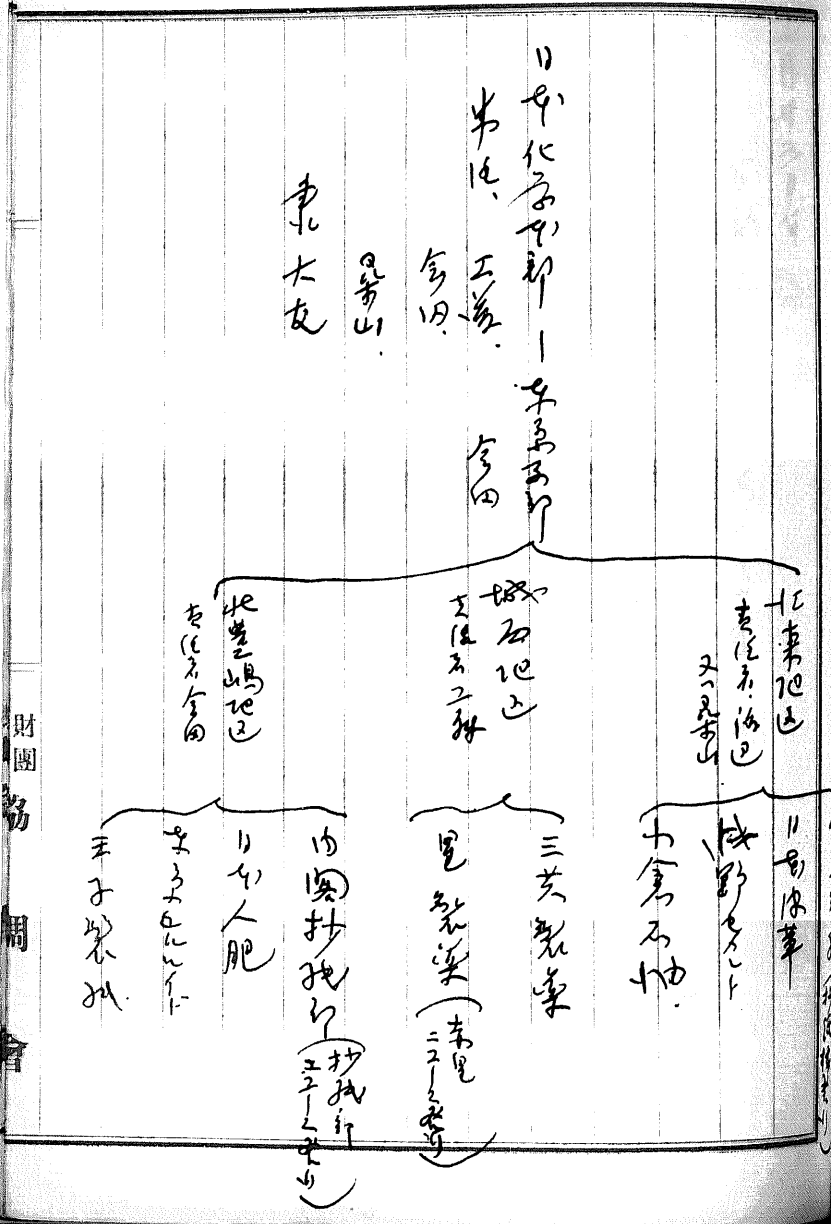 日本化学本部ー東京支部
常任、工藤、会田
会田、
桑山、
東大友
江東地区
責任者、渡辺
又ハ桑山
日本皮革
浅野セメント
小倉石油
城西地区
責任者工藤
三共製薬
星製薬（赤星
ニュース発行）
北豊嶋地区
責任者会田
内閣抄紙部（抄紙部
ニュース発行）
日本人肥
東京セルロイド
王子製紙
財團
協調會